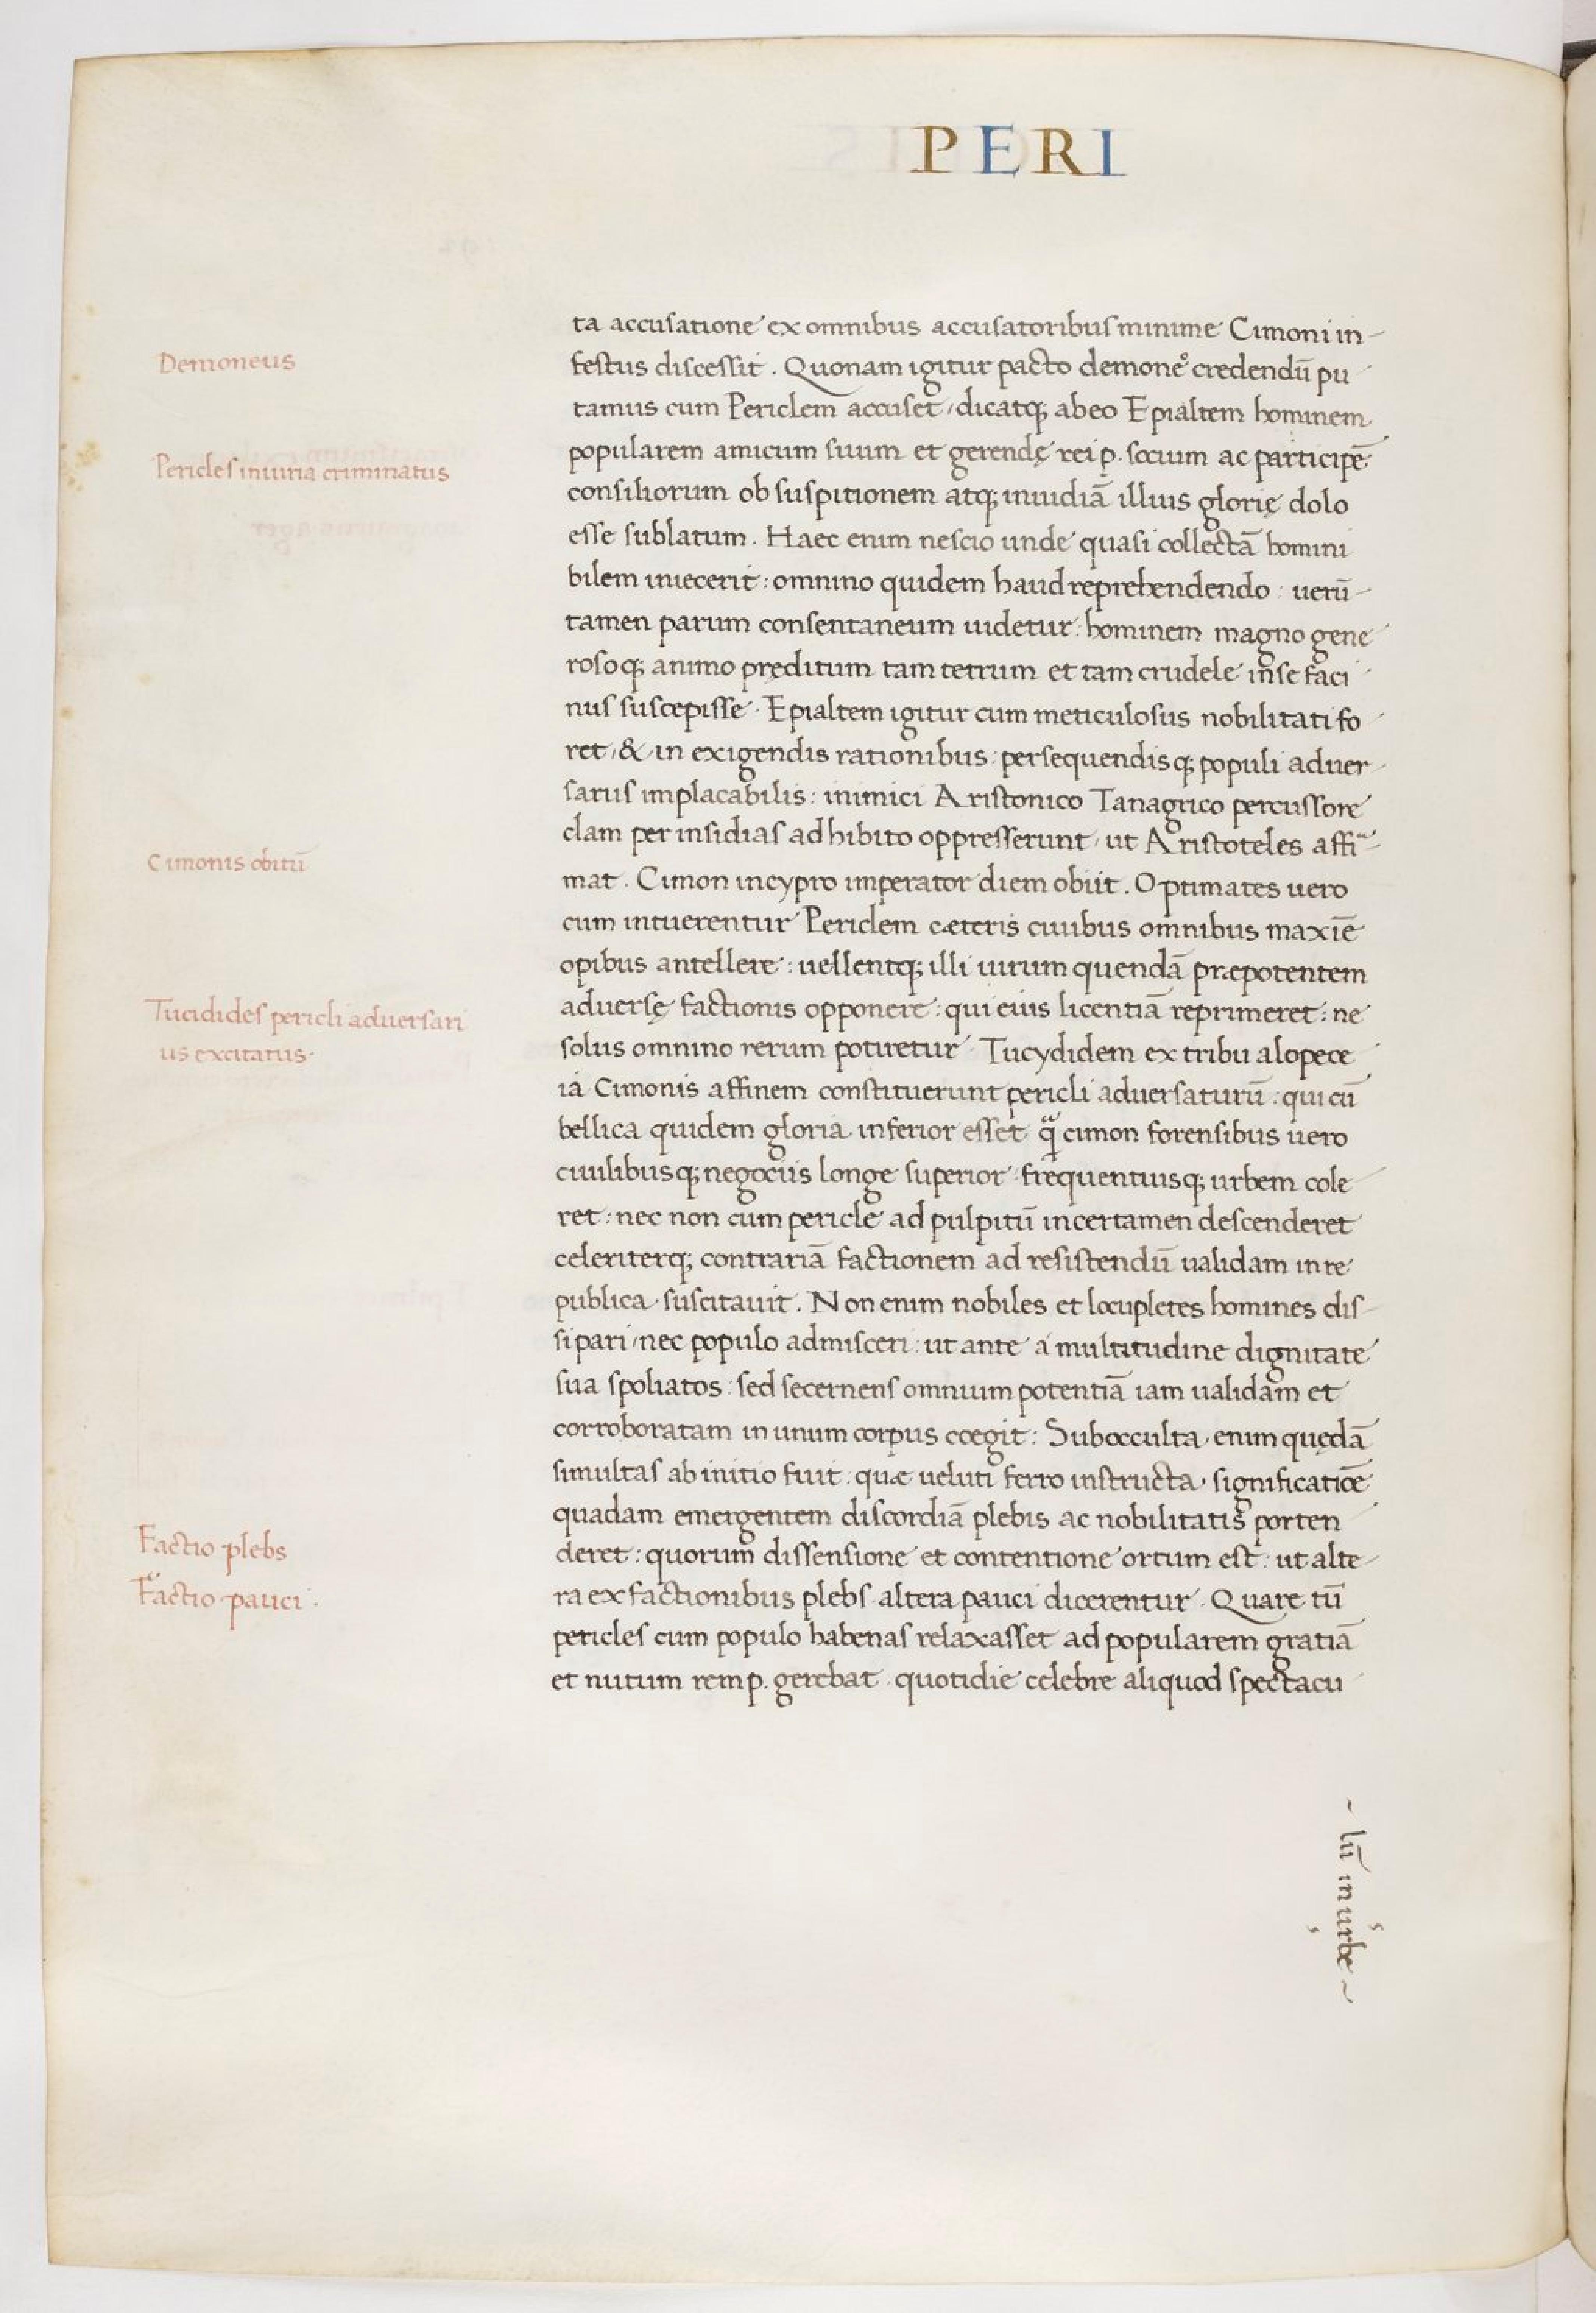 PERI
ta accusatione ex omnibus accusatoribus minime Cimoni in-
Demoneus
festus discessit. Quonam igitur pacto demoneͦ credendū pu
tamus cum Periclem accuset, dicatq; ab eo Epialtem hominem
popularem amicum suum et gerendę rei p. socium ac participē
Pericles iniuria criminatus
consiliorum ob suspitionem atq; inuidiā illius glorię dolo
esse sublatum. Haec enim nescio unde quasi collectā homini
bilem iniecerit: omnino quidem haud reprehendendo: uerū-
tamen parum consentaneum uidetur: hominem magno gene
rosoq; animo pręditum tam tetrum et tam crudele in se faci
nus suscepisse. Epialtem igitur cum meticulosus nobilitati fo
ret, & in exigendis rationibus: persequendisq; populi aduer
sarus implacabilis: inimici Aristonico Tanagrico percussore
clam per insidias adhibito oppresserunt, ut Aristoteles affi-
Cimonis obitū
mat. Cimon in cypro imperator diem obiit. Optimates uero
cum intuerentur Periclem cæteris ciuibus omnibus maxīe
opibus antellere: uellentq; illi uirum quendā præpotentem
Tucidides pericli aduersari
us excitatus.
aduersę factionis opponere: qui eius licentiā reprimeret: ne
solus omnino rerum potiretur. Tucydidem ex tribu alopece
ia Cimonis affinem constituerunt pericli aduersaturū: qui cū
bellica quidem gloria inferior esset qͣ̄ cimon forensibus uero
ciuilibusq; negociis longe superior: frequentiusq; urbem cole
ret: nec non cum pericle ad pulpitū in certamen descenderet
celeriterq; contrariā factionem ad resistendū ualidam in re
publica suscitauit. Non enim nobiles et locupletes homines dis-
sipari, nec populo admisceri: ut ante a multitudine dignitate
sua spoliatos: sed secernens omnium potentiā iam ualidam et
corroboratam in unum corpus coegit: Subocculta enim quędā
simultas ab initio fuit: quæ ueluti ferro instructa significatiōe
quadam emergentem discordiā plebis ac nobilitatis porten
Factio plebs
deret: quorum dissensione et contentione ortum est: ut alte-
Factio pauci.
ra ex factionibus plebs altera pauci dicerentur. Quare tū
pericles cum populo habenas relaxasset ad popularem gratiā
et nutum rem p. gerebat. quotidie celebre aliquod spectacu
- lū in urbe ~